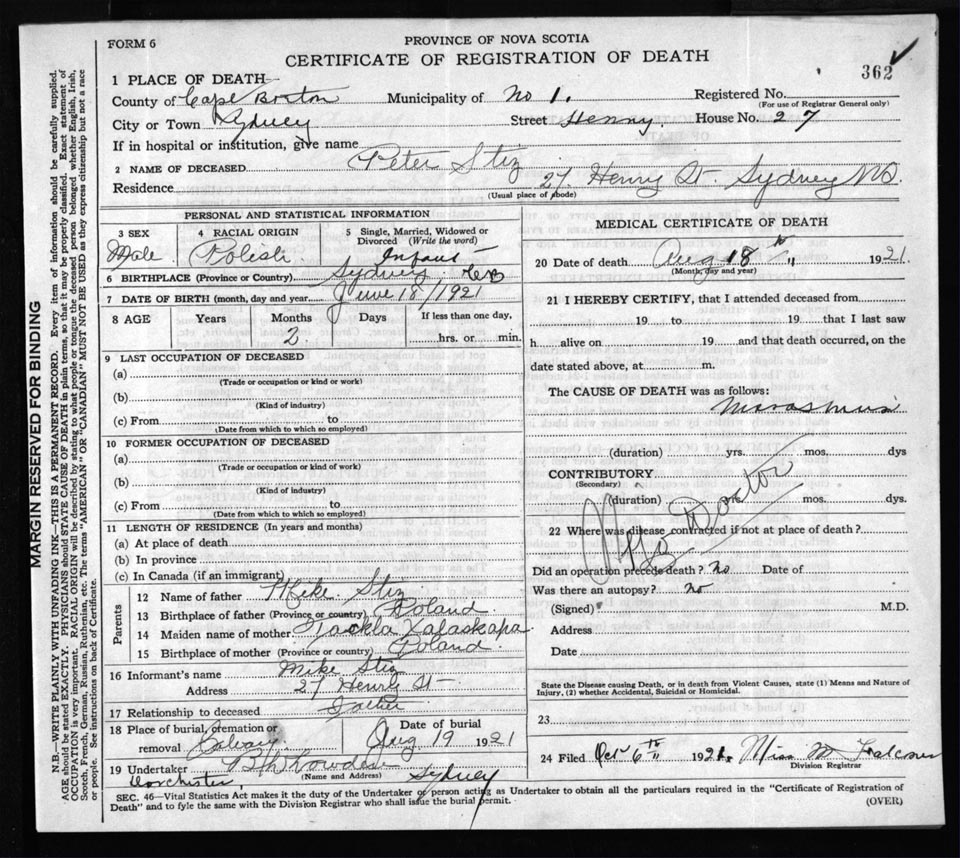 FORM 6
PROVINCE OF NOVA SCOTIA
CERTIFICATE OF REGISTRATION OF DEATH
362
1 PLACE OF DEATH
County of Cape Breton Municipality of No 1. Registered No.
(For use of Registrar General only)
City or Town Sydney Street Henry House No. 27
If in hospital or institution, give name
2 NAME OF DECEASED Peter Stiz
Residence 27 Henry St. Sydney NS.
(Usual place of abode)
PERSONAL AND STATISTICAL INFORMATION
3 SEX 4 RACIAL ORIGIN 5 Single, Married, Widowed or Divorced (Write the word)
Male Polish Infant
6 BIRTHPLACE (Province or Country) Sydney
7 DATE OF BIRTH (month, day and year) June 18/1921
8 AGE Years Months Days If less than one day,
2 hrs. or min.
9 LAST OCCUPATION OF DECEASED
(a)
(Trade or occupation or kind or work)
(b)
(Kind of industry)
(c) From to
(Date from which to which so employed)
10 FORMER OCCUPATION OF DECEASED
(a)
(Trade or occupation or kind of work)
(b)
(Kind of industry)
(c) From to
(Date from which to which so employed)
11 LENGTH OF RESIDENCE (In years and months)
(a) At place of death
(b) In province
(c) In Canada (if an immigrant)
Parents
12 Name of father Mike Stiz
13 Birthplace of father (Province or country) Poland
14 Maiden name of mother
15 Birthplace of mother (Province or country) Poland
16 Informant's name Mike Stiz
Address 27 Henry St
17 Relationship to deceased Father
18 Place of burial, cremation or removal Calvary Date of burial Aug 19 1921
19 Undertaker
(Name and Address)
Dorchester, Sydney
MEDICAL CERTIFICATE OF DEATH
20 Date of death Aug 18 th 1921
(Month, day and year)
21 I HEREBY CERTIFY, that I attended deceased from
19 to 19 that I last saw
h alive on 19 and that death occurred, on the
date stated above, at m.
The CAUSE OF DEATH was as follows:
Marasmus
(duration) yrs. mos. dys
CONTRIBUTORY
(Secondary)
(duration) yrs. mos. dys.
No Doctor
22 Where was disease contracted if not at place of death?
Did an operation precede death? No Date of
Was there an autopsy? No
(Signed) M.D.
Address
Date
State the Disease causing Death, or in death from Violent Causes, state (1) Means and Nature of
Injury, (2) whether Accidental, Suicidal or Homicidal.
23
24 Filed Oct 6th 1921 Miss M
Division Registrar
SEC. 46—Vital Statistics Act makes it the duty of the Undertaker or person acting as Undertaker to obtain all the particulars required in the "Certificate of Registration of
Death" and to fyle the same with the Division Registrar who shall issue the burial permit.
(OVER)
MARGIN RESERVED FOR BINDING
N.B.—WRITE PLAINLY WITH UNFADING INK—THIS IS A PERMANENT RECORD. Every item of information should be carefully supplied.
AGE should be stated EXACTLY. PHYSICIANS should STATE CAUSE OF DEATH in plain terms, so that it may be properly classified. Exact statement of
OCCUPATION is very important. RACIAL ORIGIN will be described by stating to what people or tongue the deceased person belonged whether English, Irish,
Scotch, French, German, Russian, Ruthenian, etc. The terms "AMERICAN" OR "CANADIAN" MUST NOT BE USED as they express citizenship but not a race
or people. See instructions on back of Certificate.